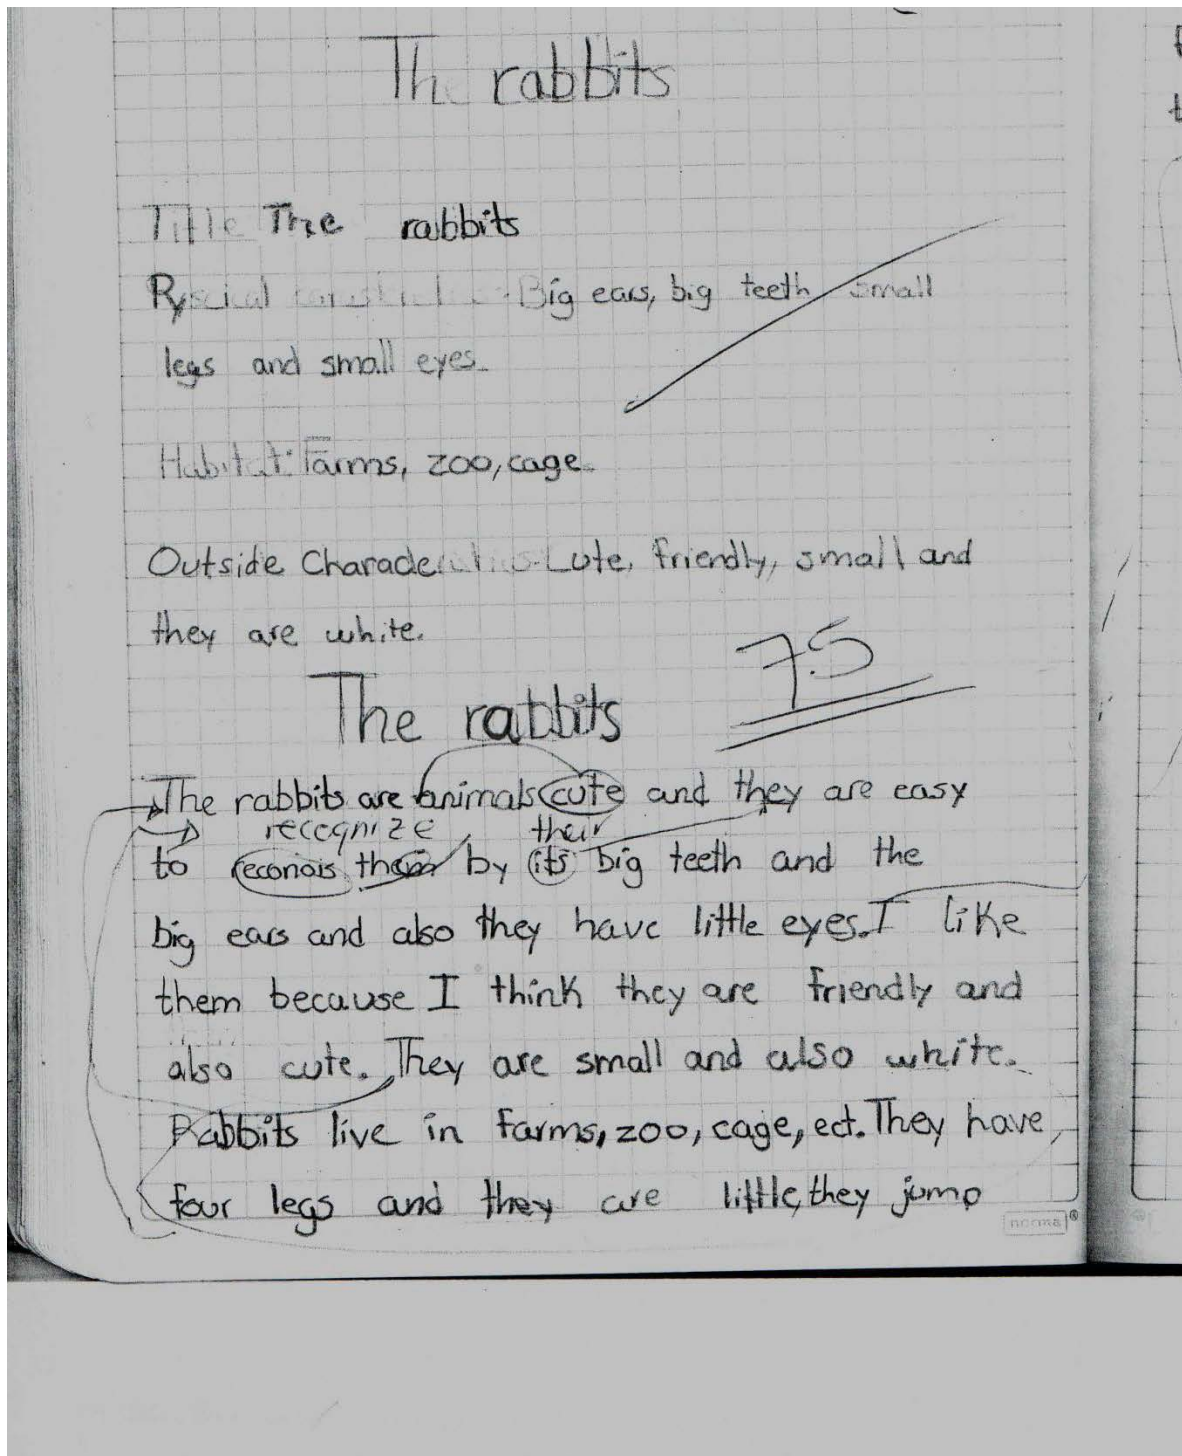 The rabbits
Title The rabbits
Big ears, big teeth small
legs and small eyes.
Habitat: Farms, zoo, cage.
Outside Cute, friendly, small and
they are white.
7.5
The rabbits
The rabbits are animals cute and they are easy
recognize their
to reconois them by its big teeth and the
big ears and also they have little eyes. I like
them because I think they are friendly and
also cute. They are small and also white.
Rabbits live in farms, zoo, cage, ect. They have
four legs and they are little, they jump
norma